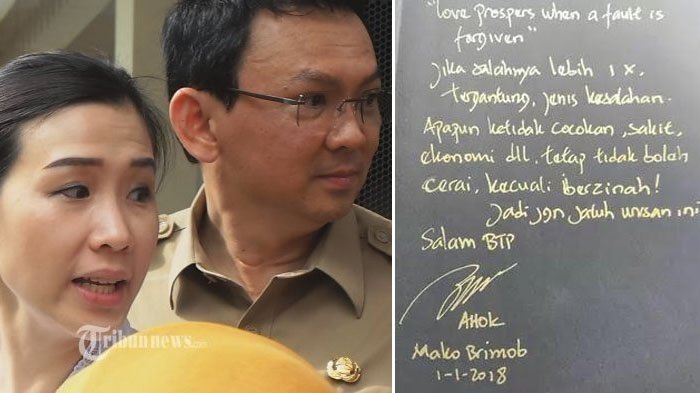 "love prospers when a fault is
forgiven"
Jika salahnya lebih 1 x.
Tergantung, jenis kesalahan.
Apapun ketidak cocokan, sakit,
ekonomi dll, tetap tidak boleh
cerai, kecuali berzinah!
Jadi jgn jatuh urusan ini
Salam BTP
AHOK
Mako Brimob
1-1-2018
Tribunnews.com